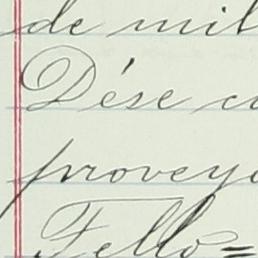 de mil
Dése co
proveyo
Fello=